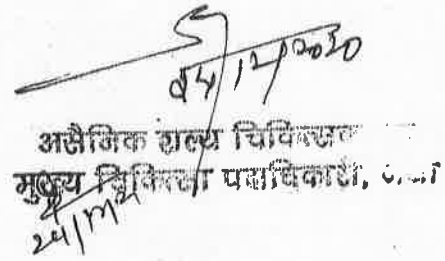 24/12/2020
असैनिक शल्य चिकित्सक
मुख्य चिकित्सा पदाधिकारी,
24/12